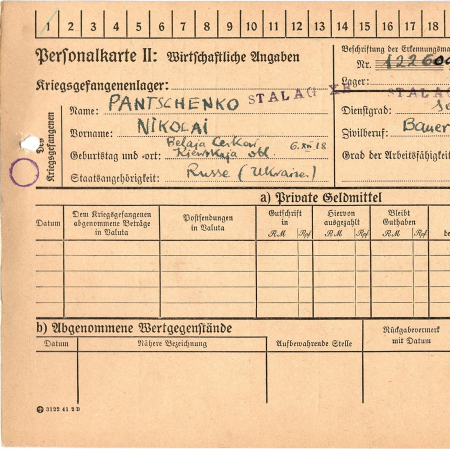 1 2 3 4 5 6 7 8 9 10 11 12 13 14 15 16 17 18
Personalkarte II: Wirtschaftliche Angaben
Beschriftung der Erkennungsma
Nr. 122600
Kriegsgefangenenlager: STALAG XB
Lager: STALAG
Des Kriegsgefangenen
Name: PANTSCHENKO
Dienstgrad:
Vorname: NIKOLAI
Zivilberuf: Bauer
Belaja Cerkov
Geburtstag und -ort: Kiewskaja obl 6.XII 18
Grad der Arbeitsfähigkeit
Staatsangehörigkeit: Russe (Ukraine.)
a) Private Geldmittel
Datum
Dem Kriegsgefangenen abgenommene Beträge in Valuta
Postsendungen in Valuta
Gutschrift in
RM Rpf
Hiervon ausgezahlt
RM Rpf
Bleibt Guthaben
RM Rpf
be
b) Abgenommene Wertgegenstände
Datum
Nähere Bezeichnung
Aufbewahrende Stelle
Rückgabevermerk mit Datum
3122 41 2 D